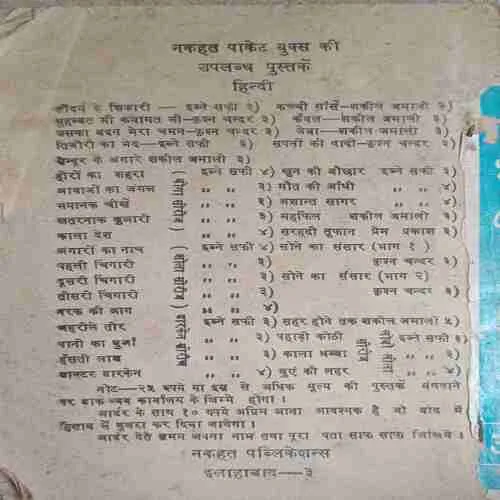 नकहत पाकेट बुक्स की
उपलब्ध पुस्तकें
हिन्दी
सौंदर्य के शिकारी — इब्ने सफ़ी ३) कच्ची साँसें—शकील जमाली ३)
मुहब्बत भी कयामत भी—कृश्न चन्दर ३) कँवल—शकील जमाली ३)
उसका बदन मेरा चमन—कृश्न चन्दर ३) जेबा—शकील जमाली ३)
तिजोरी का भेद—इब्ने सफी ३) सपनों की वादी—कृश्न चन्दर २)
के अंगारे शकील जमाली ३)
हीरों का सहरा इब्ने सफी ४) खून की बौछार इब्ने सफी ३)
आवाजों का जंगल „ „ ३) मौत की आँधी „ „ ४)
भयानक चीखें „ „ ३) अशान्त सागर „ „ ४)
खतरनाक कुमारी „ „ ३) महफिल शकील जमाली ३)
काला देश „ „ ४) सरहदी तूफान प्रेम प्रकाश ३)
अंगारों का नाच इब्ने सफी ४) सोने का संसार (भाग १ )
पहली चिंगारी „ „ ३) कृश्न चन्दर ३)
दूसरी चिंगारी „ „ ३) सोने का संसार (भाग २)
तीसरी चिंगारी „ „ ३) कृश्न चन्दर ३)
नरक की आग „ „ ४)
जहरीले तीर इब्ने सफी ३) सहर होने तक शकील जमाली ५)
पानी का धुआँ „ „ ३) पहाड़ी कोठी इब्ने सफी ३)
हँसती लाश „ „ ३) काला धब्बा „ „ ३)
डाक्टर डारकेन „ „ ४) धुएं की लहर „ „ ४)
नोट—२५ रुपये या इस से अधिक मूल्य की पुस्तकें मंगवाने
पर डाक व्यय कार्यालय के जिम्मे होगा ।
आर्डर के साथ १० रुपये अग्रिम आना आवश्यक है जो बाद में
हिसाब में मुजरा कर दिया जावेगा ।
आर्डर देते समय अपना नाम तथा पूरा पता साफ साफ लिखिये ।
नकहत पब्लिकेशन्स
इलाहाबाद—३